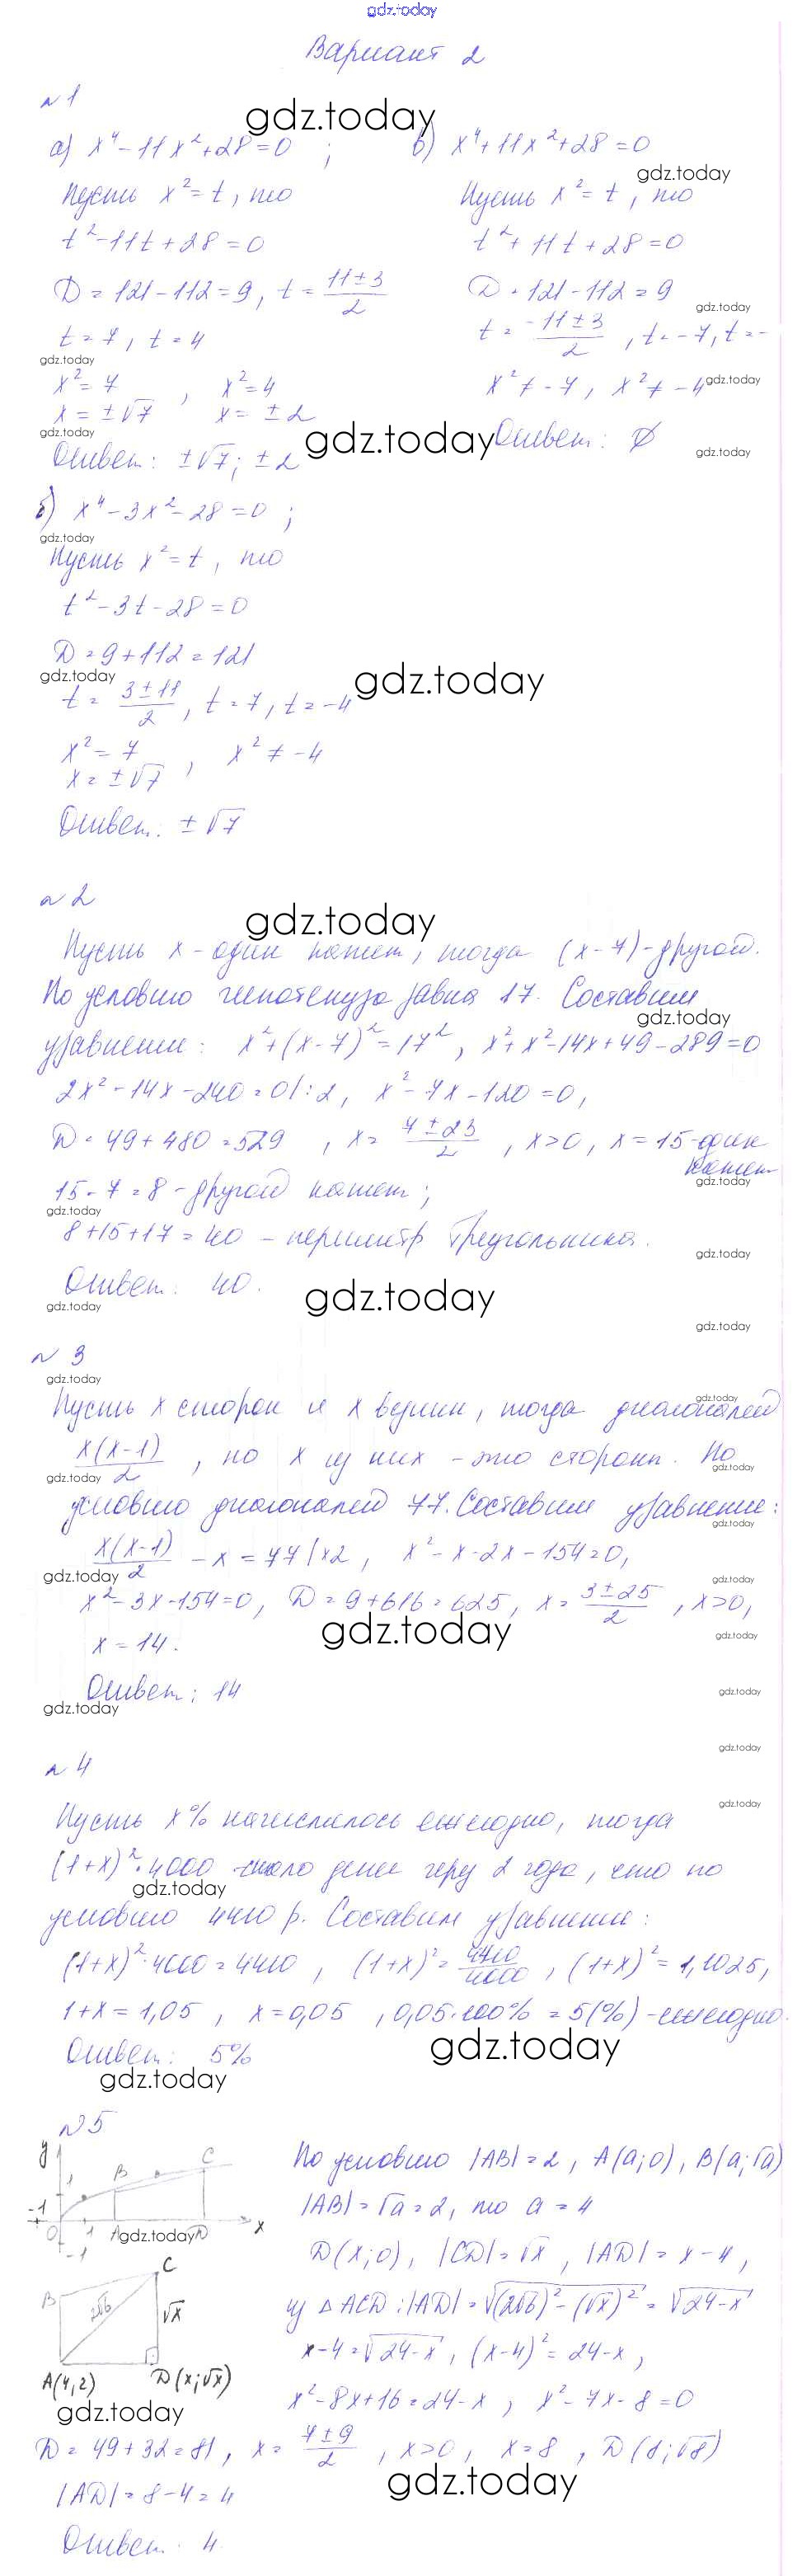 gdz.today
Вариант 2
№1
gdz.today
а) x⁴-11x²+28=0 ;
в) x⁴+11x²+28=0
gdz.today
Пусть x²=t, то
t²-11t+28=0
D=121-112=9, t=(11±3)/2
t=7, t=4
gdz.today
x²=7 , x²=4
x=±√7 x=±2
gdz.today
Ответ: ±√7; ±2
Пусть x²=t, то
t²+11t+28=0
D=121-112=9
gdz.today
t=(-11±3)/2, t=-7, t=-
x²≠-7, x²≠-4
gdz.today
gdz.today
Ответ: ∅
gdz.today
б) x⁴-3x²-28=0 ;
gdz.today
Пусть x²=t, то
t²-3t-28=0
D=9+112=121
gdz.today
gdz.today
t=(3±11)/2, t=7, t=-4
x²=7 , x²≠-4
x=±√7
Ответ: ±√7
№2
gdz.today
Пусть x-один катет, тогда (x-7)-другой.
По условию гипотенуза равна 17. Составим
gdz.today
уравнение: x²+(x-7)²=17², x²+x²-14x+49-289=0
2x²-14x-240=0|:2, x²-7x-120=0,
D=49+480=529 , x=(7±23)/2, x>0, x=15-один
катет
gdz.today
15-7=8-другой катет;
gdz.today
8+15+17=40 - периметр треугольника.
gdz.today
Ответ: 40.
gdz.today
gdz.today
gdz.today
№3
gdz.today
gdz.today
Пусть x сторон и x вершин, тогда диагоналей
x(x-1)/2, но x из них - это стороны. По
gdz.today
gdz.today
условию диагоналей 77. Составим уравнение:
gdz.today
x(x-1)/2 - x = 77|×2, x²-x-2x-154=0,
gdz.today
gdz.today
x²-3x-154=0, D=9+616=625, x=(3±25)/2, x>0,
gdz.today
gdz.today
x=14.
Ответ: 14
gdz.today
gdz.today
gdz.today
№4
gdz.today
Пусть x% начислялось ежегодно, тогда
(1+x)²·4000 стало денег через 2 года, что по
gdz.today
условию 4410 р. Составим уравнение:
(1+x)²·4000=4410, (1+x)²=4410/4000, (1+x)²=1,1025,
1+x=1,05, x=0,05, 0,05·100%=5(%)-ежегодно.
Ответ: 5%
gdz.today
gdz.today
№5
y
1
B
C
-1
0
1
A
gdz.today
D
x
-1
По условию |AB|=2, A(a;0), B(a;√a)
|AB|=√a=2, то a=4
D(x;0), |CD|=√x, |AD|=x-4,
C
B
2√6
√x
A(4,2)
D(x;√x)
gdz.today
из △ACD: |AD|=√((2√6)²-(√x)²)=√(24-x)
x-4=√(24-x), (x-4)²=24-x,
x²-8x+16=24-x, x²-7x-8=0
D=49+32=81, x=(7±9)/2, x>0, x=8, D(8;√8)
gdz.today
|AD|=8-4=4
Ответ: 4.